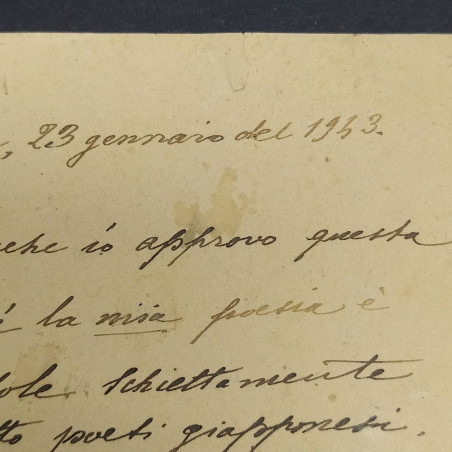 , 23 gennaio del 1943.
io approvo questa
la mia poesia è
Schiettamente
poeti giapponesi.